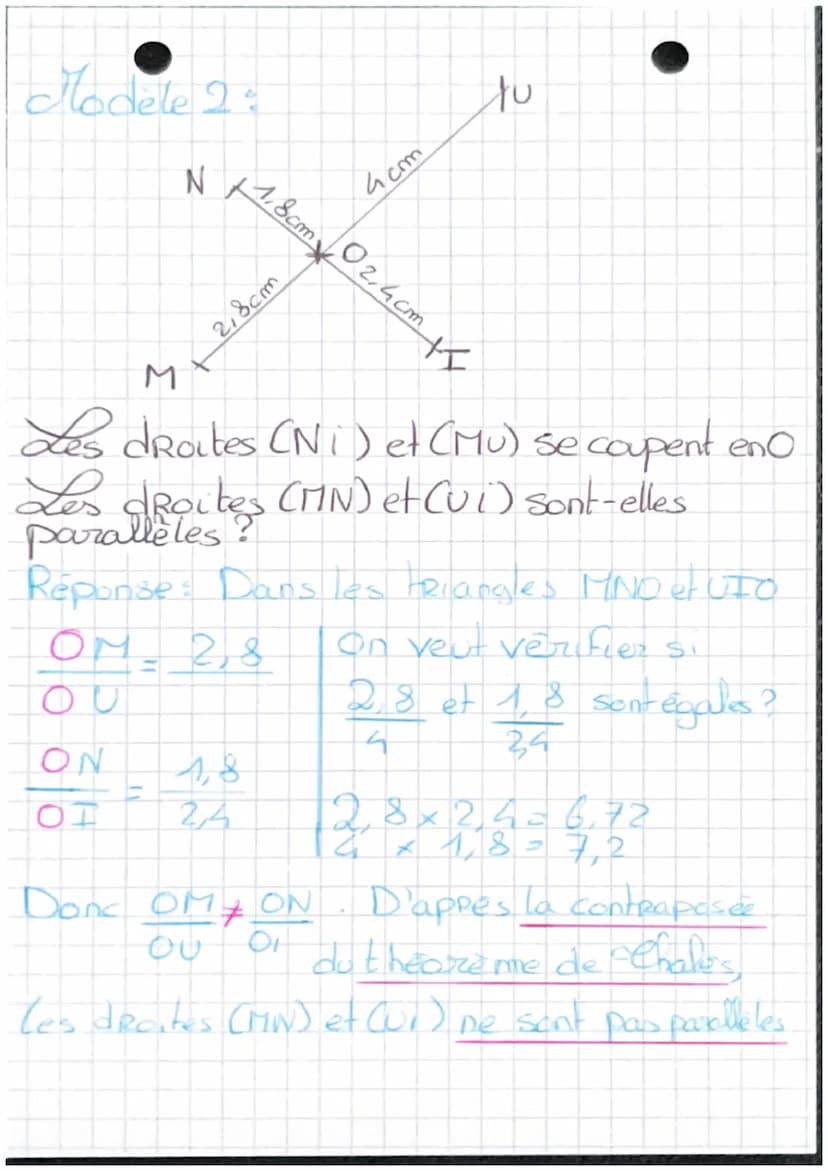 Modèle 2 :
U
N
1,8cm
4cm
O
2,4cm
2,8cm
M
I
Les droites (Ni) et (MU) se coupent en O
Les droites (MN) et (Ui) sont-elles
parallèles ?
Réponse : Dans les triangles MNO et UIO
OM/OU = 2,8
On veut vérifier si
2,8/4 et 1,8/2,4 sont égales ?
ON/OI = 1,8/2,4
2,8 × 2,4 = 6,72
4 × 1,8 = 7,2
Donc OM/OU ≠ ON/Oi . D'appes la contraposée
du théorème de Thales,
les droites (MN) et (Ui) ne sont pas parallèles